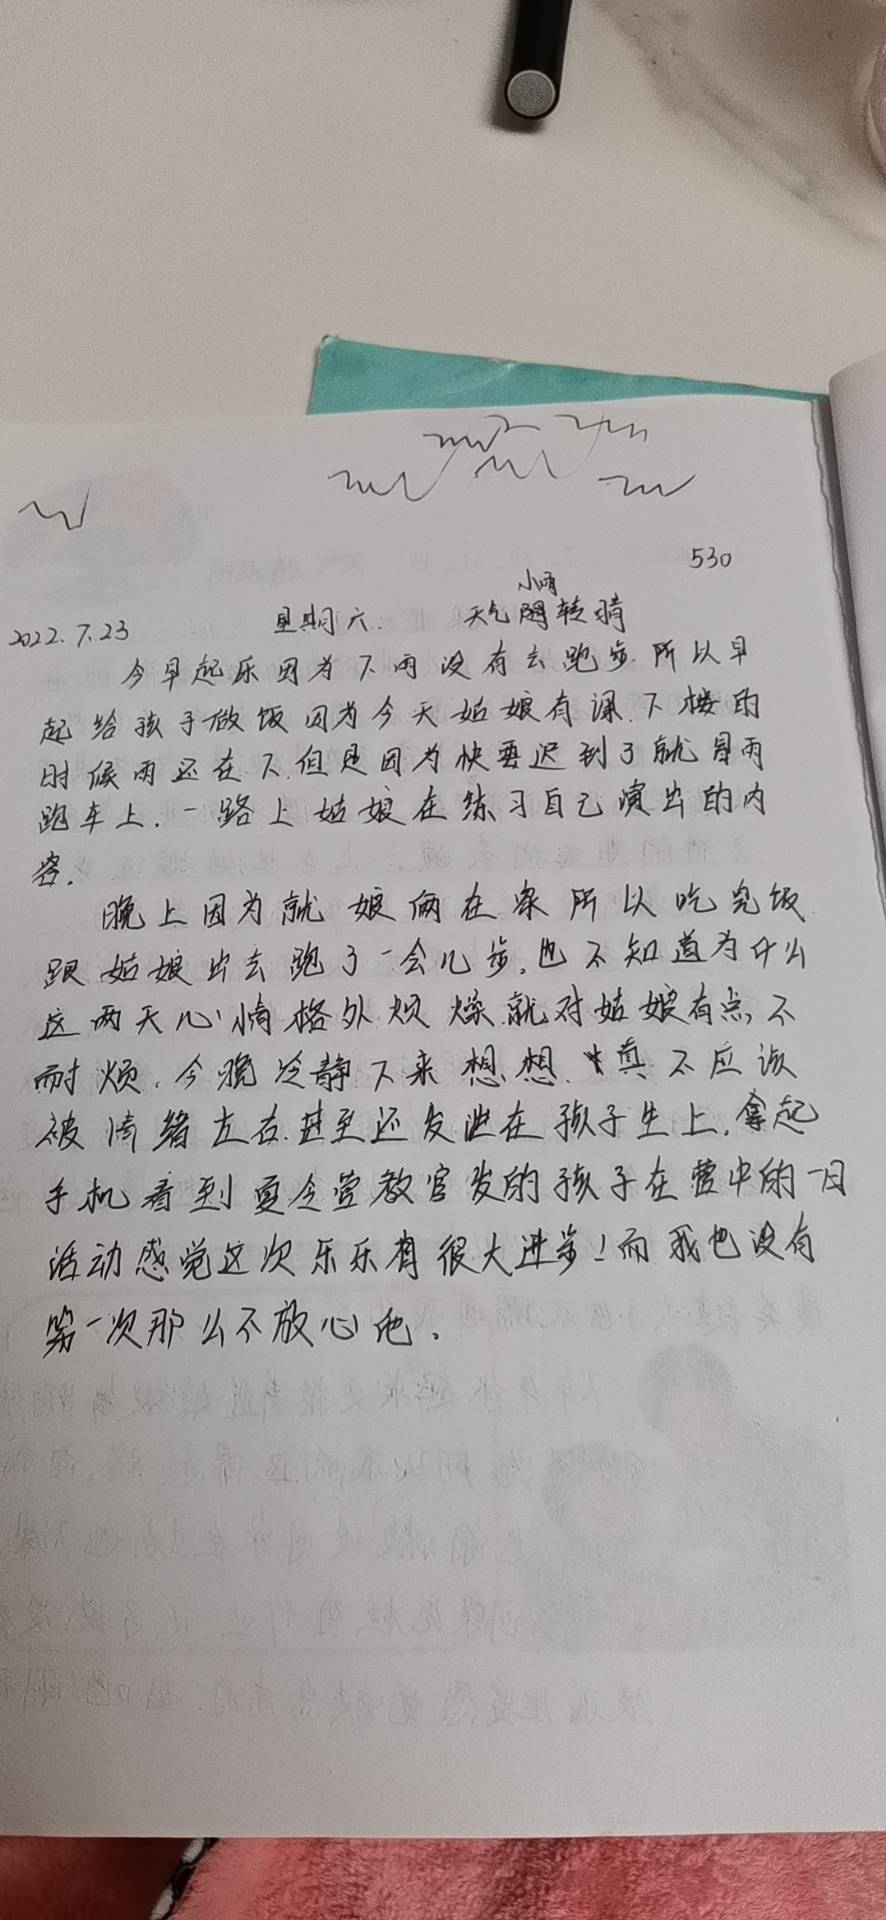 530
小雨
2022.7.23 星期六. 天气阴转晴
今早起床因为下雨没有去跑步.所以早
起给孩子做饭因为今天姑娘有课.下楼的
时候雨还在下.但是因为快要迟到了就冒雨
跑车上.一路上姑娘在练习自己演出的内
容.
晚上因为就娘俩在家所以吃完饭
跟姑娘出去跑了一会儿步.也不知道为什么
这两天心情格外烦燥.就对姑娘有点不
耐烦.今晚冷静下来想想.真不应该
被情绪左右.甚至还发泄在孩子生上.拿起
手机看到夏令营教官发的孩子在营中的一日
活动感觉这次乐乐有很大进步!而我也没有
第一次那么不放心他.